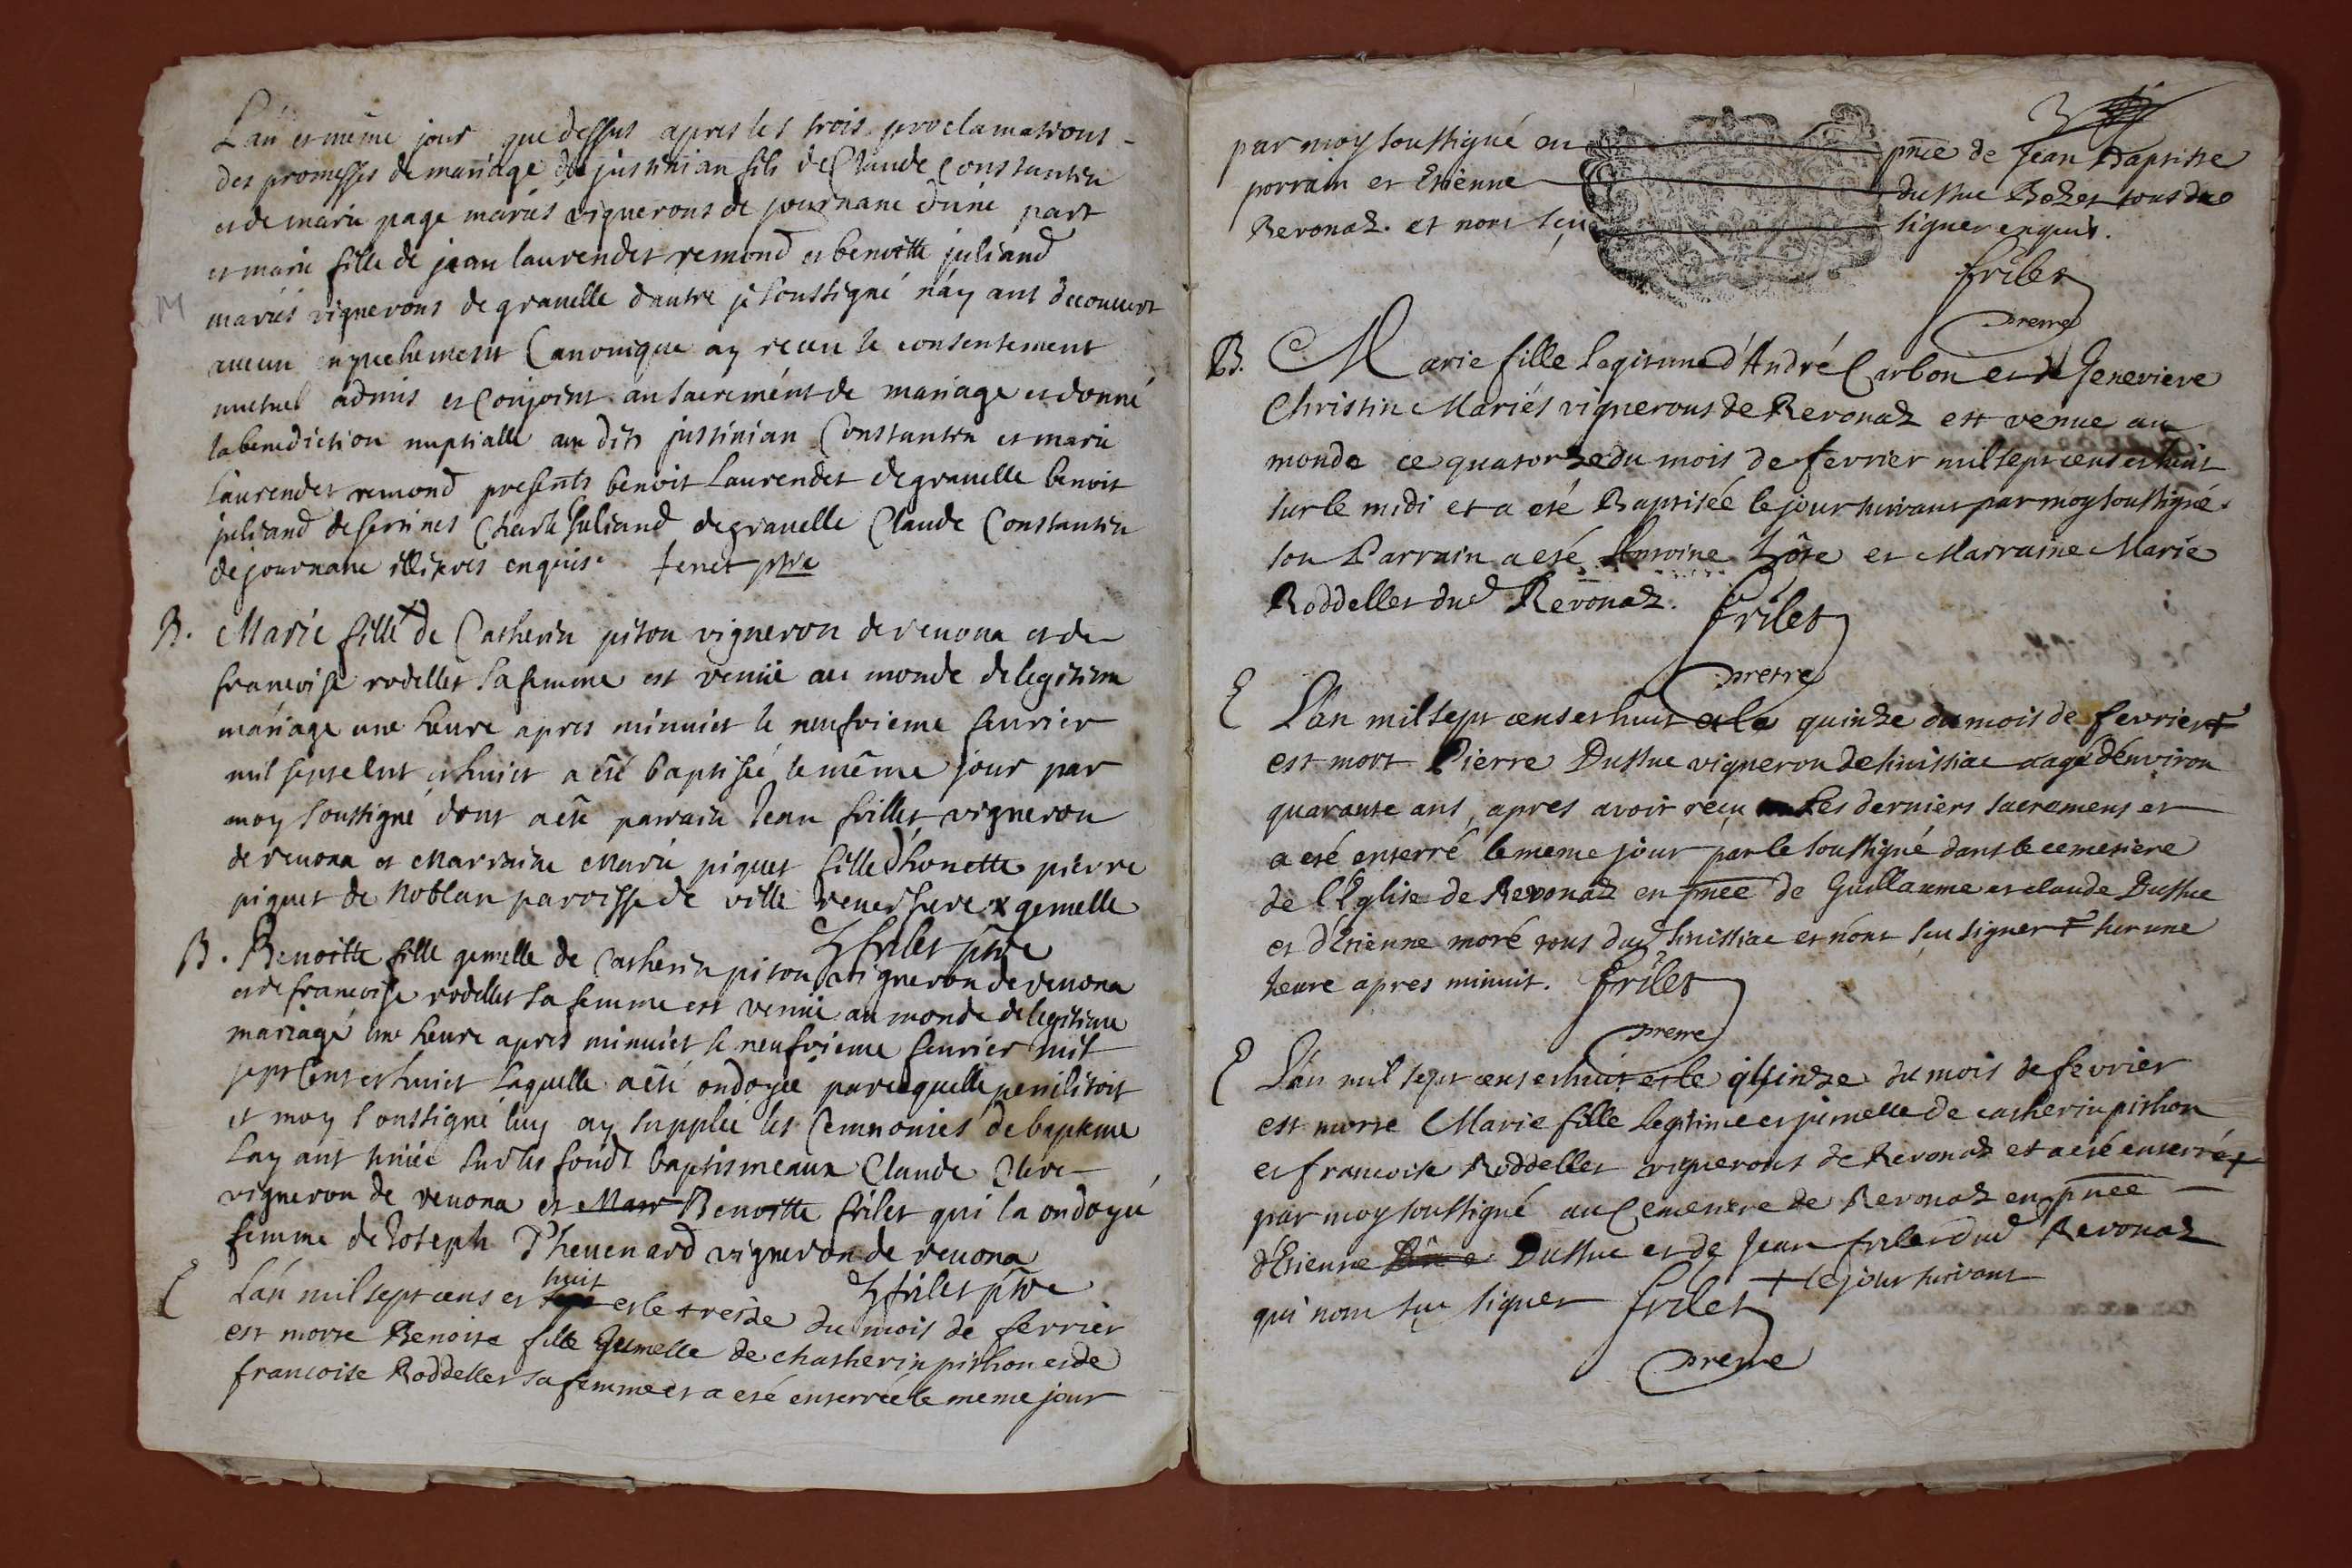 L'an et même jour que dessus apres les trois proclamations
des promesses de mariage de justinian fils de Claude Constantin
et de marie page mariés vignerons de journane d'une part
et marie fille de jean laurendet remond et benoitte juliand
M
mariés vignerons de gravelle dautre je soussigné n'ay ant decouvert
aucun enpechement Canonique ay receu le consentement
mutuel admis et Conjoint au sacrement de mariage et donné
la benediction nuptialle au dits justinian Constantin et marie
Laurendet remond presents benoit Laurendet de gravelle benoit
juliand de serrines Charle Juliand de gravelle Claude Constantin
de journane illiteres enquis. tenet ptre
B. Marie fille + de Catherin piton vigneron de revona et de
francoise rodellet sa femme est venüe au monde de legitime
mariage une heure apres minuict le neufvieme feuvrier
mil sept cent et huict a été baptisée le même jour par
moy soussigné dont a été parrain Jean frillet vigneron
de revona et Marraine Marie piquet fille d'honette pierre
piquet de Noblan paroisse de ville reversure x gemelle
frilet ptre
B. Benoitte fille gemelle de Catherin piton vigneron de revona
et de francoise rodellet sa femme est venüe au monde de legitime
mariage une heure apres minuict le neufvieme feuvrier mil
sept Cent et huict Laquelle a été ondoyée parcequelle periclitoit
et moy soussigné luy ay supplée les Ceremonies de bapteme
Lay ant tenüe sur les fonds baptismeaux Claude
vigneron de revona et Marr Benoitte frilet qui la ondoyé
femme de Joseph Thevenard vigneron de revona
frilet ptre
E L'an mil sept cens et sept huit et le treize du mois de fevrier
est morte Benoite fille Gemelle de chatherin pithon et de
francoise Roddellet sa femme et a eté enterrée le meme jour
3
par moy soussigné en pnce de Jean Baptiste
porrain et Etienne dussuc Bozet tous du
Revonaz. et nont sçu signer enquis.
frilet
pretre
B. Marie fille legitime d'André Carbon et de Genevieve
Christin Mariés vignerons de Revonaz est venue au
monde ce quatorze du mois de fevrier mil sept cens et huit
sur le midi et a eté Baptisée le jour suivant par moy soussigné.
son Parrain a eté Antoine et Marraine Marie
Roddellet dud Revonaz. frilet
pretre
E L'an mil sept cens et huit et le quinze du mois de fevrier +
est mort Pierre Dussuc vigneron de sinissiac aagé d'environ
quarante ans, apres avoir reçu les derniers sacremens et
a eté enterré le meme jour par le soussigné dans le cemetiere
de l'Eglise de Revonaz en pnce de Guillaume et claude Dussuc
et d'Etienne moré tous dud sinissiac et nont sçu signer + sur une
heure apres minuit. frilet
pretre
E L'an mil sept cens et huit et le quinze du mois de fevrier
est morte Marie fille legitime et jumelle de catherin pithon
et francoise Roddellet vignerons de Revonaz et a eté enterrée +
par moy soussigné au Cemetiere de Revonaz en pnce
d'Etienne Dussuc et de Jean frilet dud Revonaz
qui nont sçu signer frilet + le jour suivant
pretre